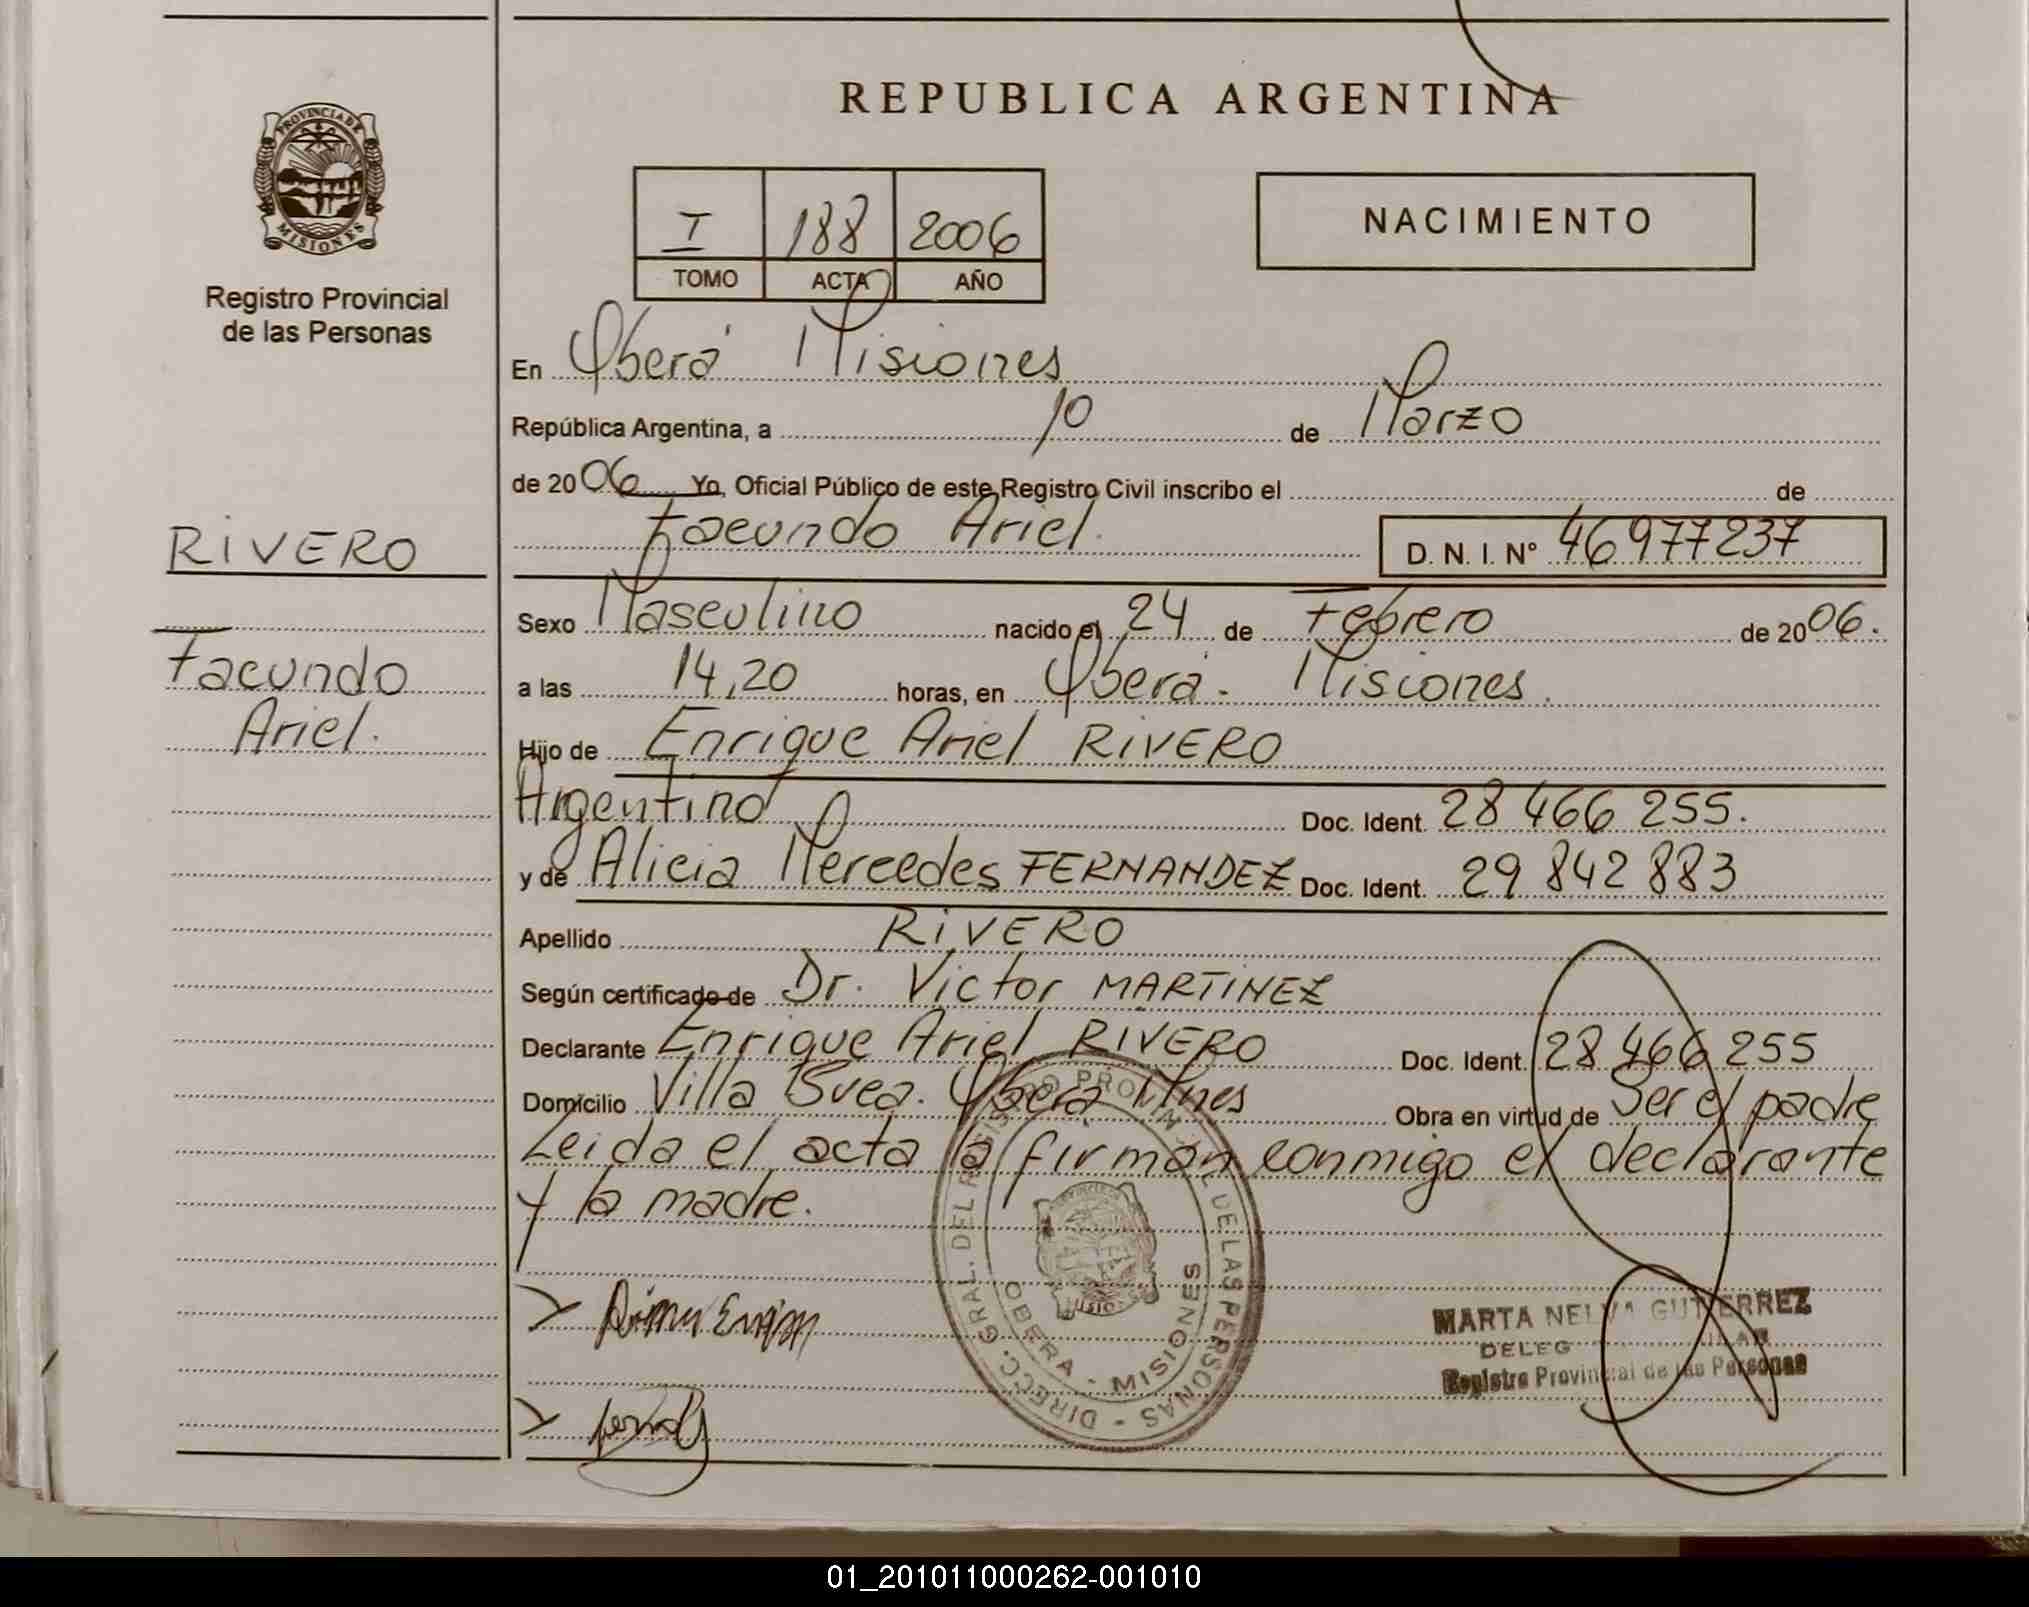 REPUBLICA ARGENTINA
PROVINCIA DE
MISIONES
Registro Provincial
de las Personas
I 188 2006
TOMO ACTA AÑO
NACIMIENTO
En Oberá Misiones
República Argentina, a 10 de Marzo
de 2006 Yo, Oficial Público de este Registro Civil inscribo el de
RIVERO
Facundo Ariel. D. N. I. Nº 46977237
Sexo Masculino nacido el 24 de Febrero de 2006.
Facundo
Ariel.
a las 14,20 horas, en Oberá. Misiones.
Hijo de Enrique Ariel RIVERO
Argentino Doc. Ident. 28 466 255.
y de Alicia Mercedes FERNANDEZ Doc. Ident. 29 842 883
Apellido RIVERO
Según certificado de Dr. Victor MARTINEZ
Declarante Enrique Ariel RIVERO Doc. Ident. 28 466 255
Domicilio Villa Svea. Oberá Mnes Obra en virtud de Ser el padre
Leida el acta la firman conmigo el declarante
y la madre.
DIRECC. GRAL. DEL REGISTRO PROVINCIAL DE LAS PERSONAS
OBERA - MISIONES
MARTA NELVA GUTIERREZ
DELEG
Registro Provincial de las Personas
01_201011000262-001010